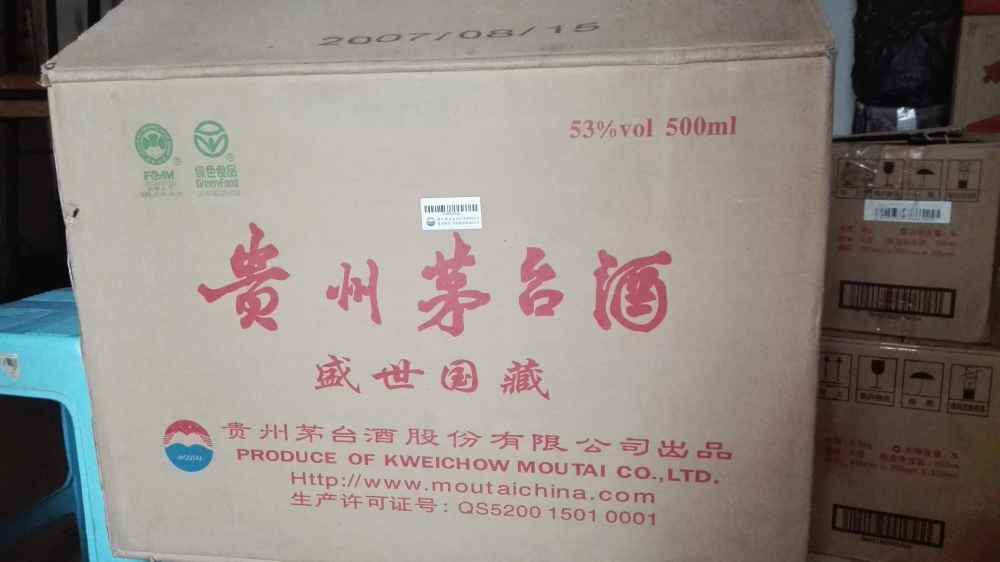 2007/08/15
53%vol 500ml
绿色食品
GreenFood
贵州茅台酒
盛世国藏
贵州茅台酒股份有限公司出品
PRODUCE OF KWEICHOW MOUTAI CO.,LTD.
Http://www.moutaichina.com
生产许可证号：QS5200 1501 0001